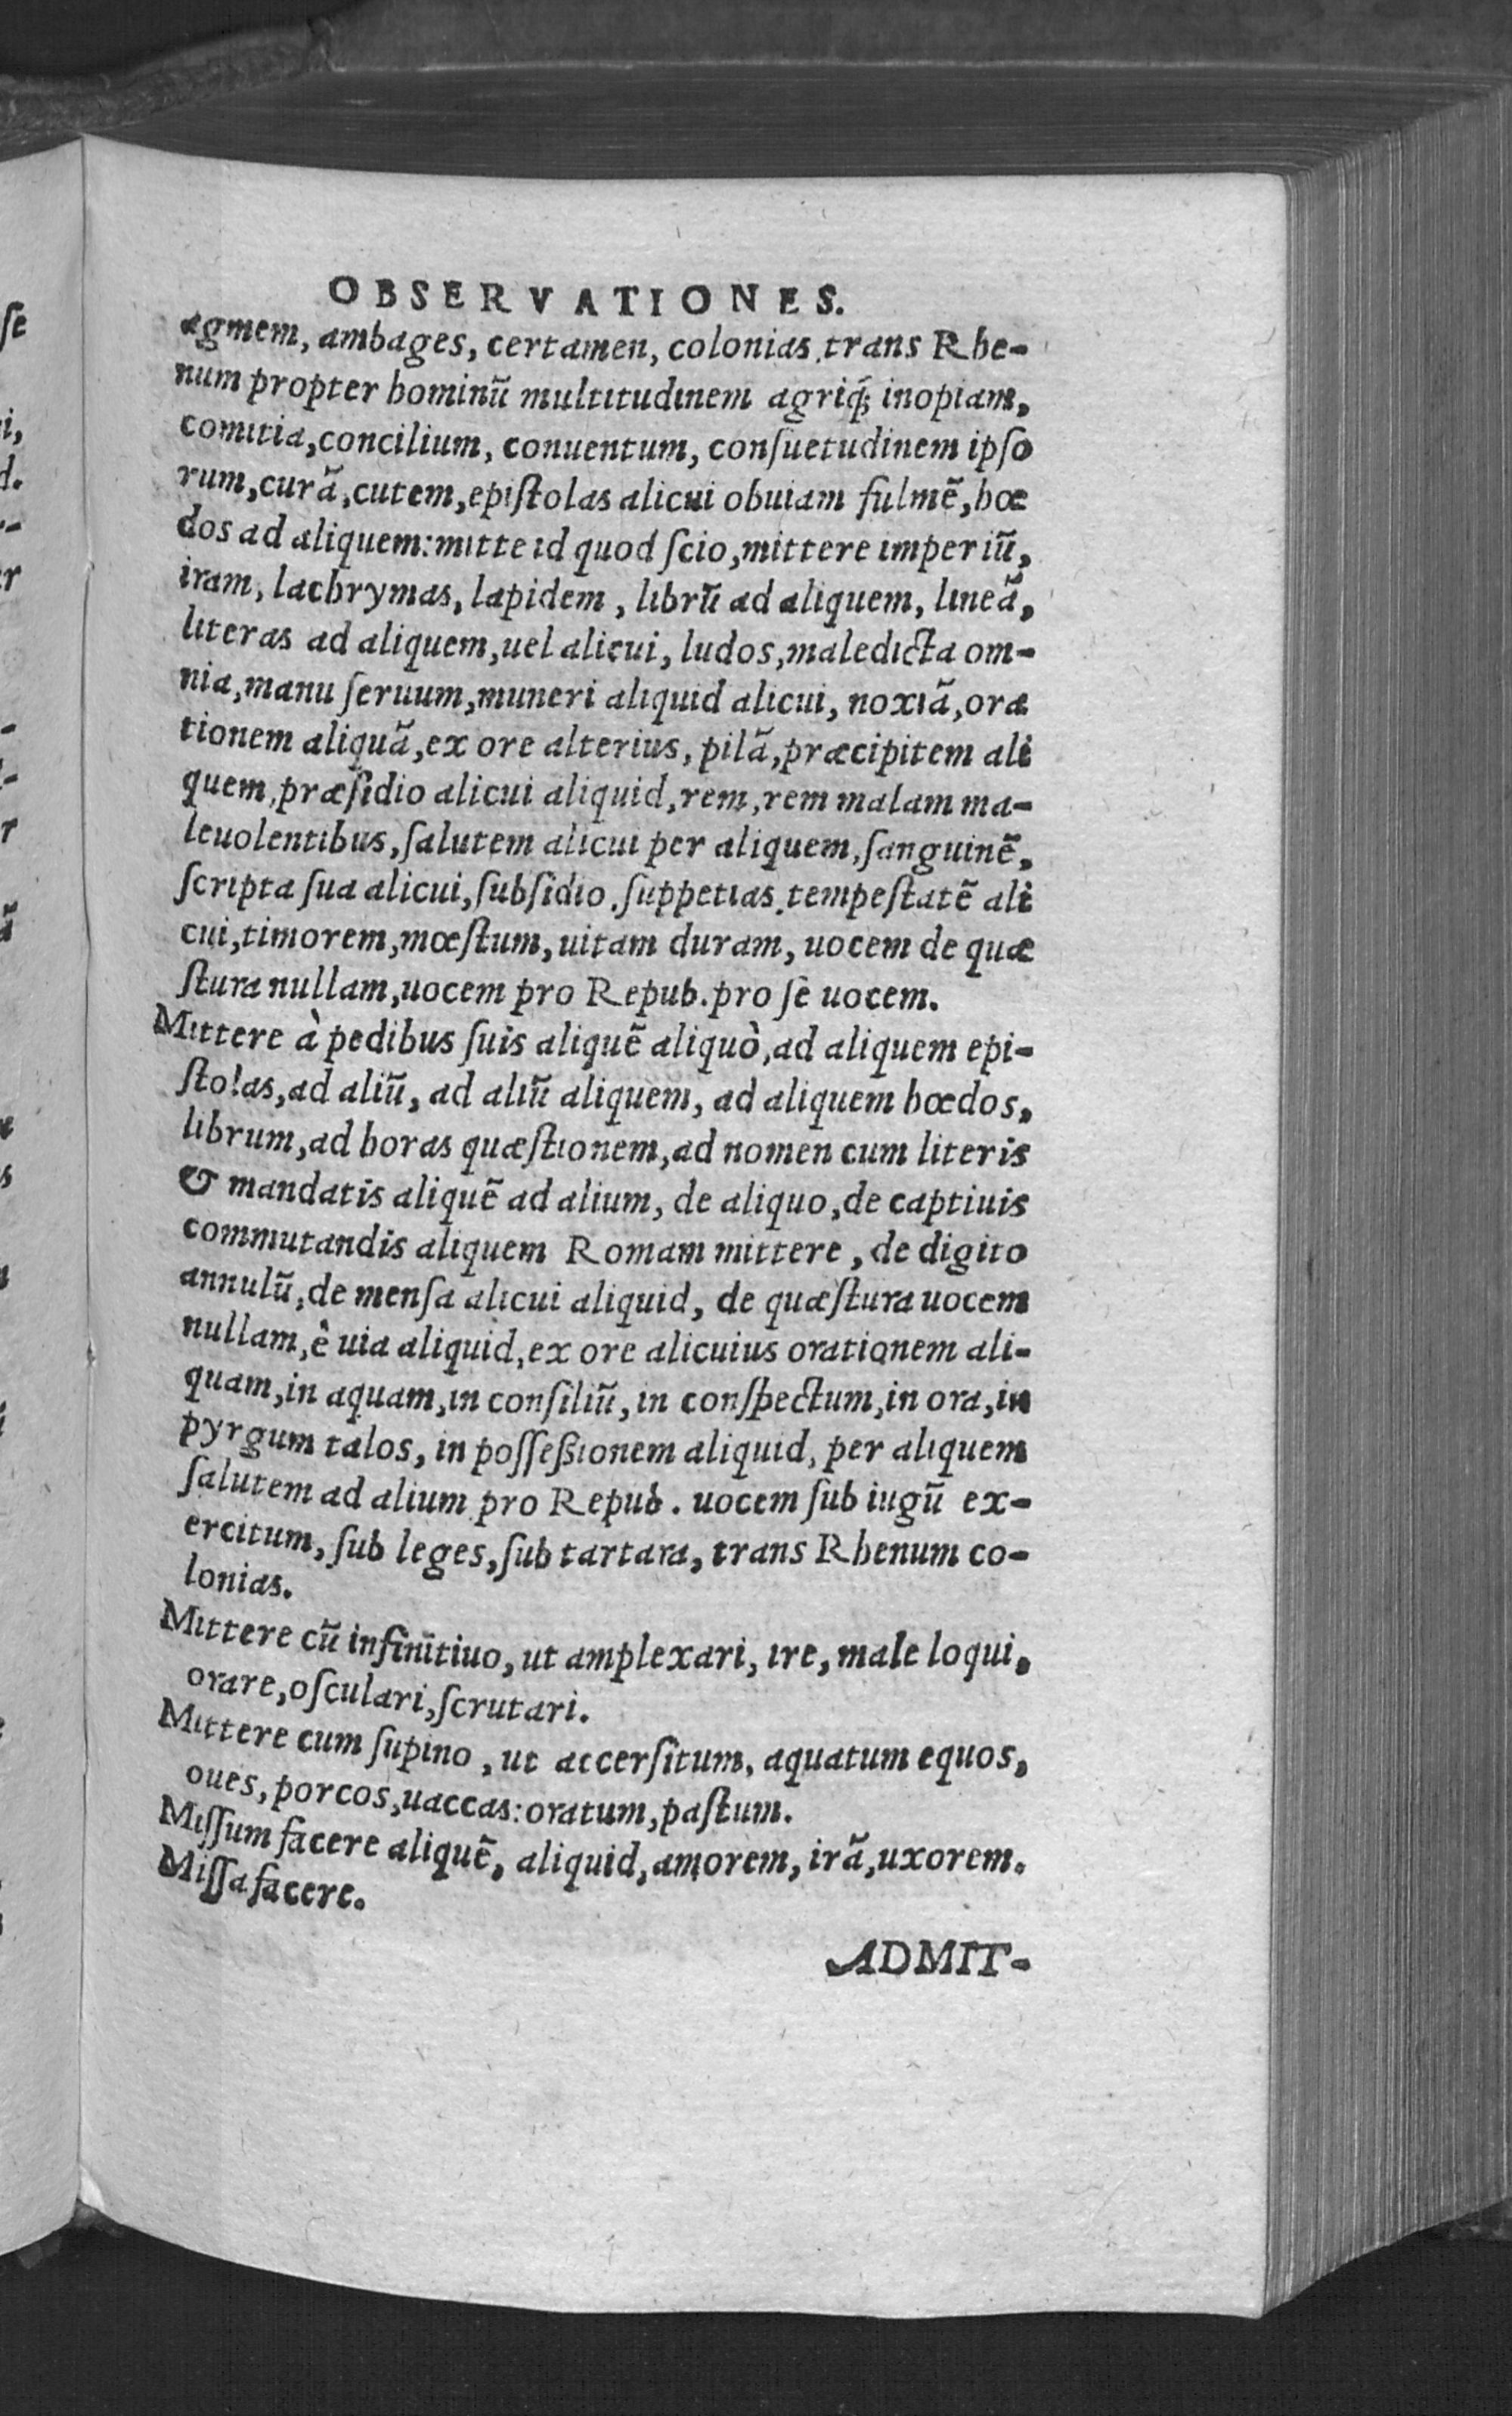 OBSERVATIONES.
agmem, ambages, certamen, colonias trans Rhe-
num propter hominū multitudinem agriq́; inopiam,
comitia, concilium, conuentum, conſuetudinem ipſo
rum, curā, cutem, epiſtolas alicui obuiam fulmē, hœ
dos ad aliquem: mitte id quod ſcio, mittere imperiū,
iram, lachrymas, lapidem, librū ad aliquem, lineā,
literas ad aliquem, uel alicui, ludos, maledicta om-
nia, manu ſeruum, muneri aliquid alicui, noxiā, ora
tionem aliquā, ex ore alterius, pilā, præcipitem ali
quem, præſidio alicui aliquid, rem, rem malam ma-
leuolentibus, ſalutem alicui per aliquem, ſanguinē,
ſcripta ſua alicui, ſubſidio, ſuppetias, tempeſtatē ali
cui, timorem, mœſtum, uitam duram, uocem de quæ
ſtura nullam, uocem pro Repub. pro ſe uocem.
Mittere à pedibus ſuis aliquē aliquò, ad aliquem epi-
ſtolas, ad aliū, ad aliū aliquem, ad aliquem hœdos,
librum, ad horas quæſtionem, ad nomen cum literis
& mandatis aliquē ad alium, de aliquo, de captiuis
commutandis aliquem Romam mittere, de digito
annulū, de menſa alicui aliquid, de quæſtura uocem
nullam, è uia aliquid, ex ore alicuius orationem ali-
quam, in aquam, in conſiliū, in conſpectum, in ora, in
pyrgum talos, in poſſeßionem aliquid, per aliquem
ſalutem ad alium pro Repub. uocem ſub iugū ex-
ercitum, ſub leges, ſub tartara, trans Rhenum co-
lonias.
Mittere cū infinitiuo, ut amplexari, ire, male loqui,
orare, oſculari, ſcrutari.
Mittere cum ſupino, ut accerſitum, aquatum equos,
oues, porcos, uaccas: oratum, paſtum.
Miſſum facere aliquē, aliquid, amorem, irā, uxorem.
Miſſa facere.
ADMIT-